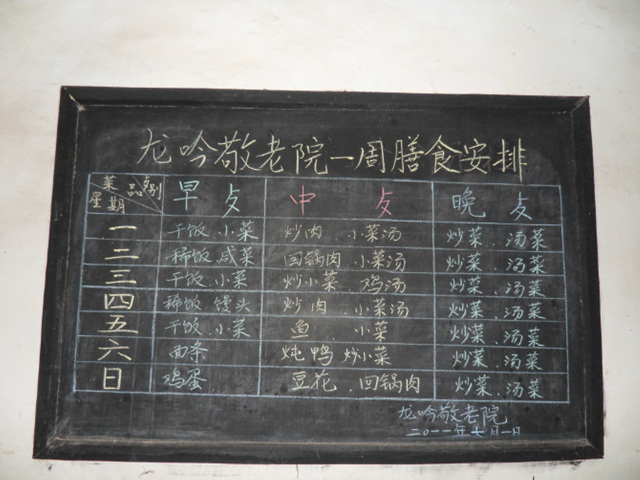 龙吟敬老院一周膳食安排
菜品 餐别 星期 早歺 中歺 晚歺
一 干饭 小菜 炒肉 、小菜汤 炒菜、汤菜
二 稀饭 咸菜 回锅肉 小菜汤 炒菜、汤菜
三 干饭、小菜 炒小菜 鸡汤 炒菜、汤菜
四 稀饭 馒头 炒肉 小菜汤 炒菜、汤菜
五 干饭、小菜 鱼 小菜 炒菜、汤菜
六 面条 炖鸭 炒小菜 炒菜、汤菜
日 鸡蛋 豆花、回锅肉 炒菜、汤菜
龙吟敬老院
二〇一一年七月一日